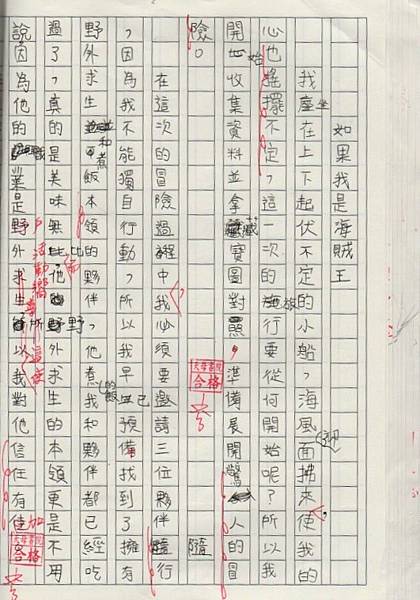 如果我是海賊王
我座坐在上下起伏不定的小船，海風面拂來使我的
心也搖擺不定，這一次的旅行要從何開始呢？所以我
開始收集資料並拿藏寶圖對照，準備展開驚人的冒
險。
合格
隨
在這次的冒險過程中我必須要邀請三位夥伴隨行
，因為我不能獨自行動，所以我早已預備找到了擁有
野外求生和煮飯本領的夥伴，他煮的飯我和夥伴都已經吃
過了，真的是美味無比，他野外求生的本領更是不用
說因為他的業是野外求生所以我對他信任有佳加
合格